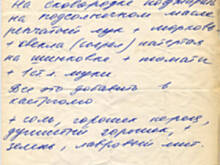 На сковородке поджарить
на подсолнечном масле
репчатый лук + морковь
+ свекла (сырая) натертая
на шинковке + томаты
+ 1 ст л. муки
Все это добавить в
кастрюлю
+ соль, горошек перец,
душистый горошек, +
зелень, лавровый лист.